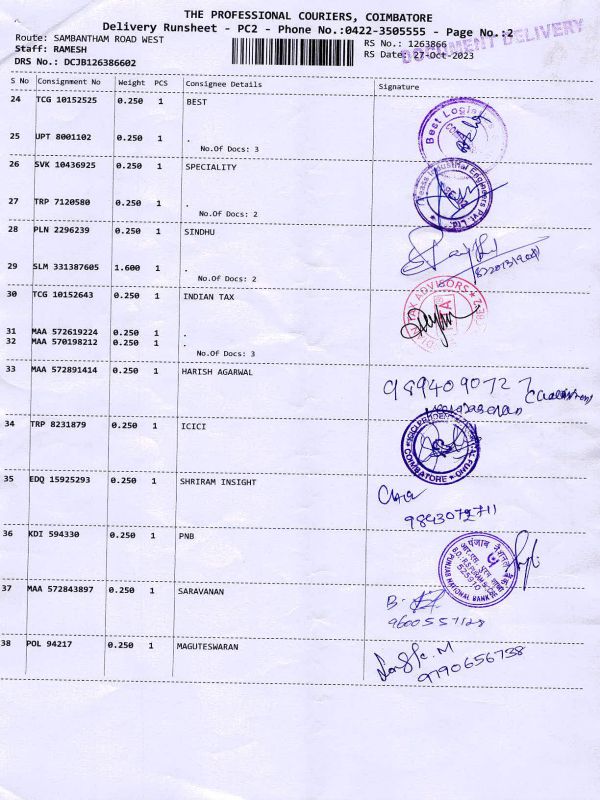 THE PROFESSIONAL COURIERS, COIMBATORE
Delivery Runsheet - PC2 - Phone No.:0422-3505555 - Page No.:2
DOCUMENT DELIVERY
Route: SAMBANTHAM ROAD WEST
RS No.: 1263866
Staff: RAMESH
RS Date: 27-Oct-2023
DRS No.: DCJB126386602
S No Consignment No Weight PCS Consignee Details Signature
24 TCG 10152525 0.250 1 BEST
Best Logis
25 UPT 8001102 0.250 1 .
No.Of Docs: 3
26 SVK 10436925 0.250 1 SPECIALITY
Industrial Engineers Pvt Ltd
27 TRP 7120580 0.250 1 .
No.Of Docs: 2
28 PLN 2296239 0.250 1 SINDHU
29 SLM 331387605 1.600 1 .
No.Of Docs: 2
30 TCG 10152643 0.250 1 INDIAN TAX
TAX ADVISORS
31 MAA 572619224 0.250 1 .
32 MAA 570198212 0.250 1 .
No.Of Docs: 3
33 MAA 572891414 0.250 1 HARISH AGARWAL
9894090727
34 TRP 8231879 0.250 1 ICICI
COIMBATORE
35 EDQ 15925293 0.250 1 SHRIRAM INSIGHT
9843072711
36 KDI 594330 0.250 1 PNB
पंजाब नैशनल बैंक
PUNJAB NATIONAL BANK
37 MAA 572843897 0.250 1 SARAVANAN
9600557128
38 POL 94217 0.250 1 MAGUTESWARAN
9790656738